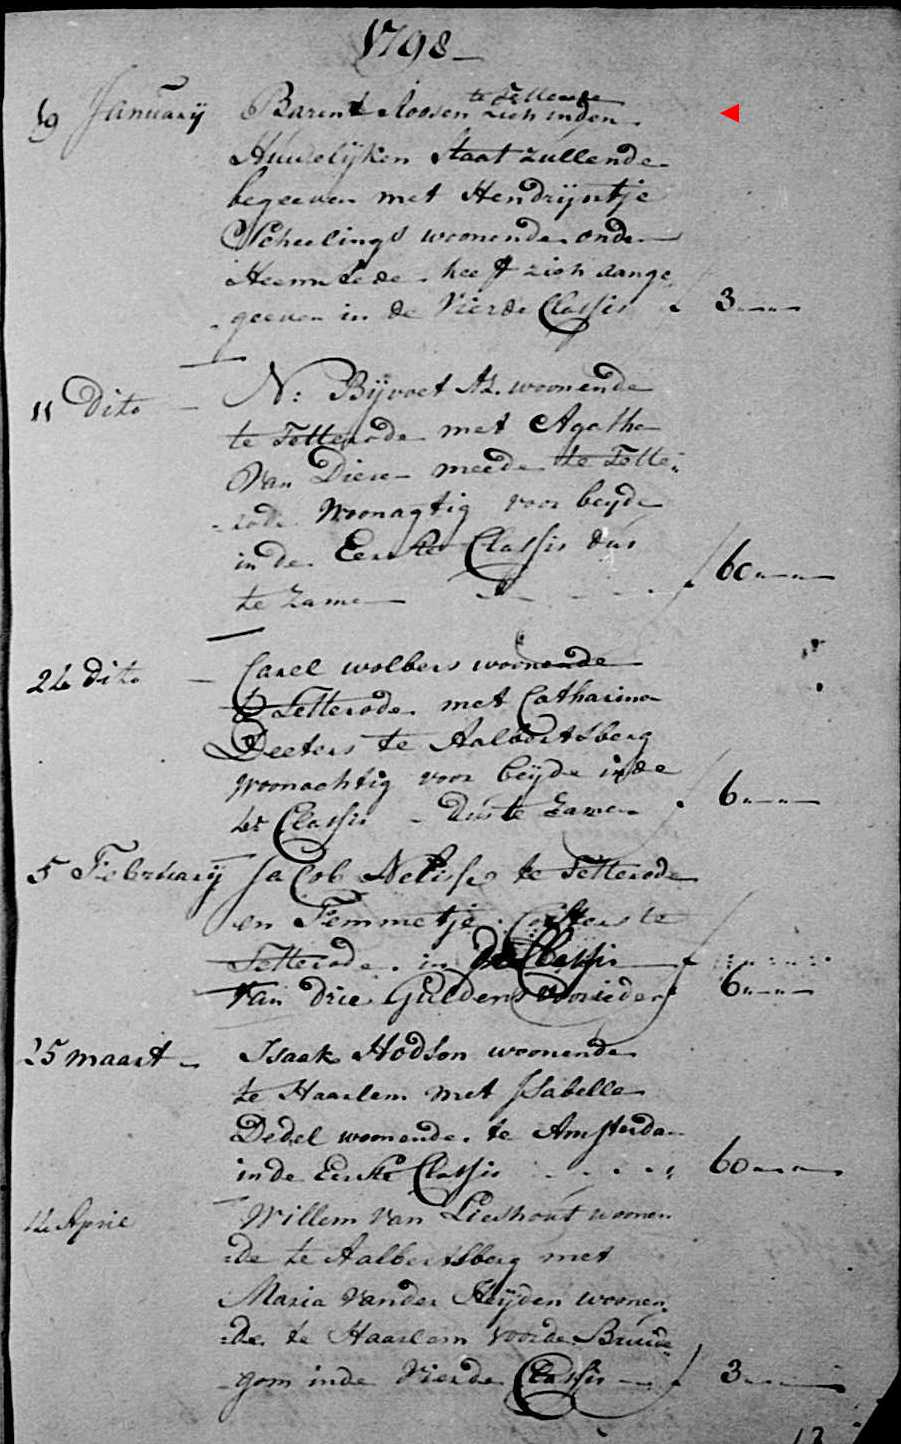 1798
19 Januarij Barent Roosen te Tetterode zich inden
Huwelijken Staat zullende
begeeven met Hendrijntje
Scheelings woonende onder
Heemstede heeft zich aange
geeven in de Vierde Classis 3
11 Dito N: Bijvoet Az. woonende
te Tetterode met Agatha
Van Dieren meede te Tette:
:rode Woonagtig voor beyde
in de Eerste Classis dus
te zamen 60
24 dito Carel wolbers woonende
te Tetterode met Catharina
Peeters te Aalbertsberg
Woonachtig voor beijde in de
4e Classis dus te zamen 6
5 Februarij Jacob Nelisse te Tetterode
en Femmetje te
Tetterode in de Classis
van drie Guldens voor ieder 6
25 maart Isaak Hodson woonende
te Haarlem met Isabella
Dedel woonende te Amsterdam
in de Eerste Classis 60
14 April Willem van Lieshout woonen
:de te Aalbertsberg met
Maria vander Heijden woonen:
:de te Haarlem voor de Bruide
gom in de Vierde Classis 3